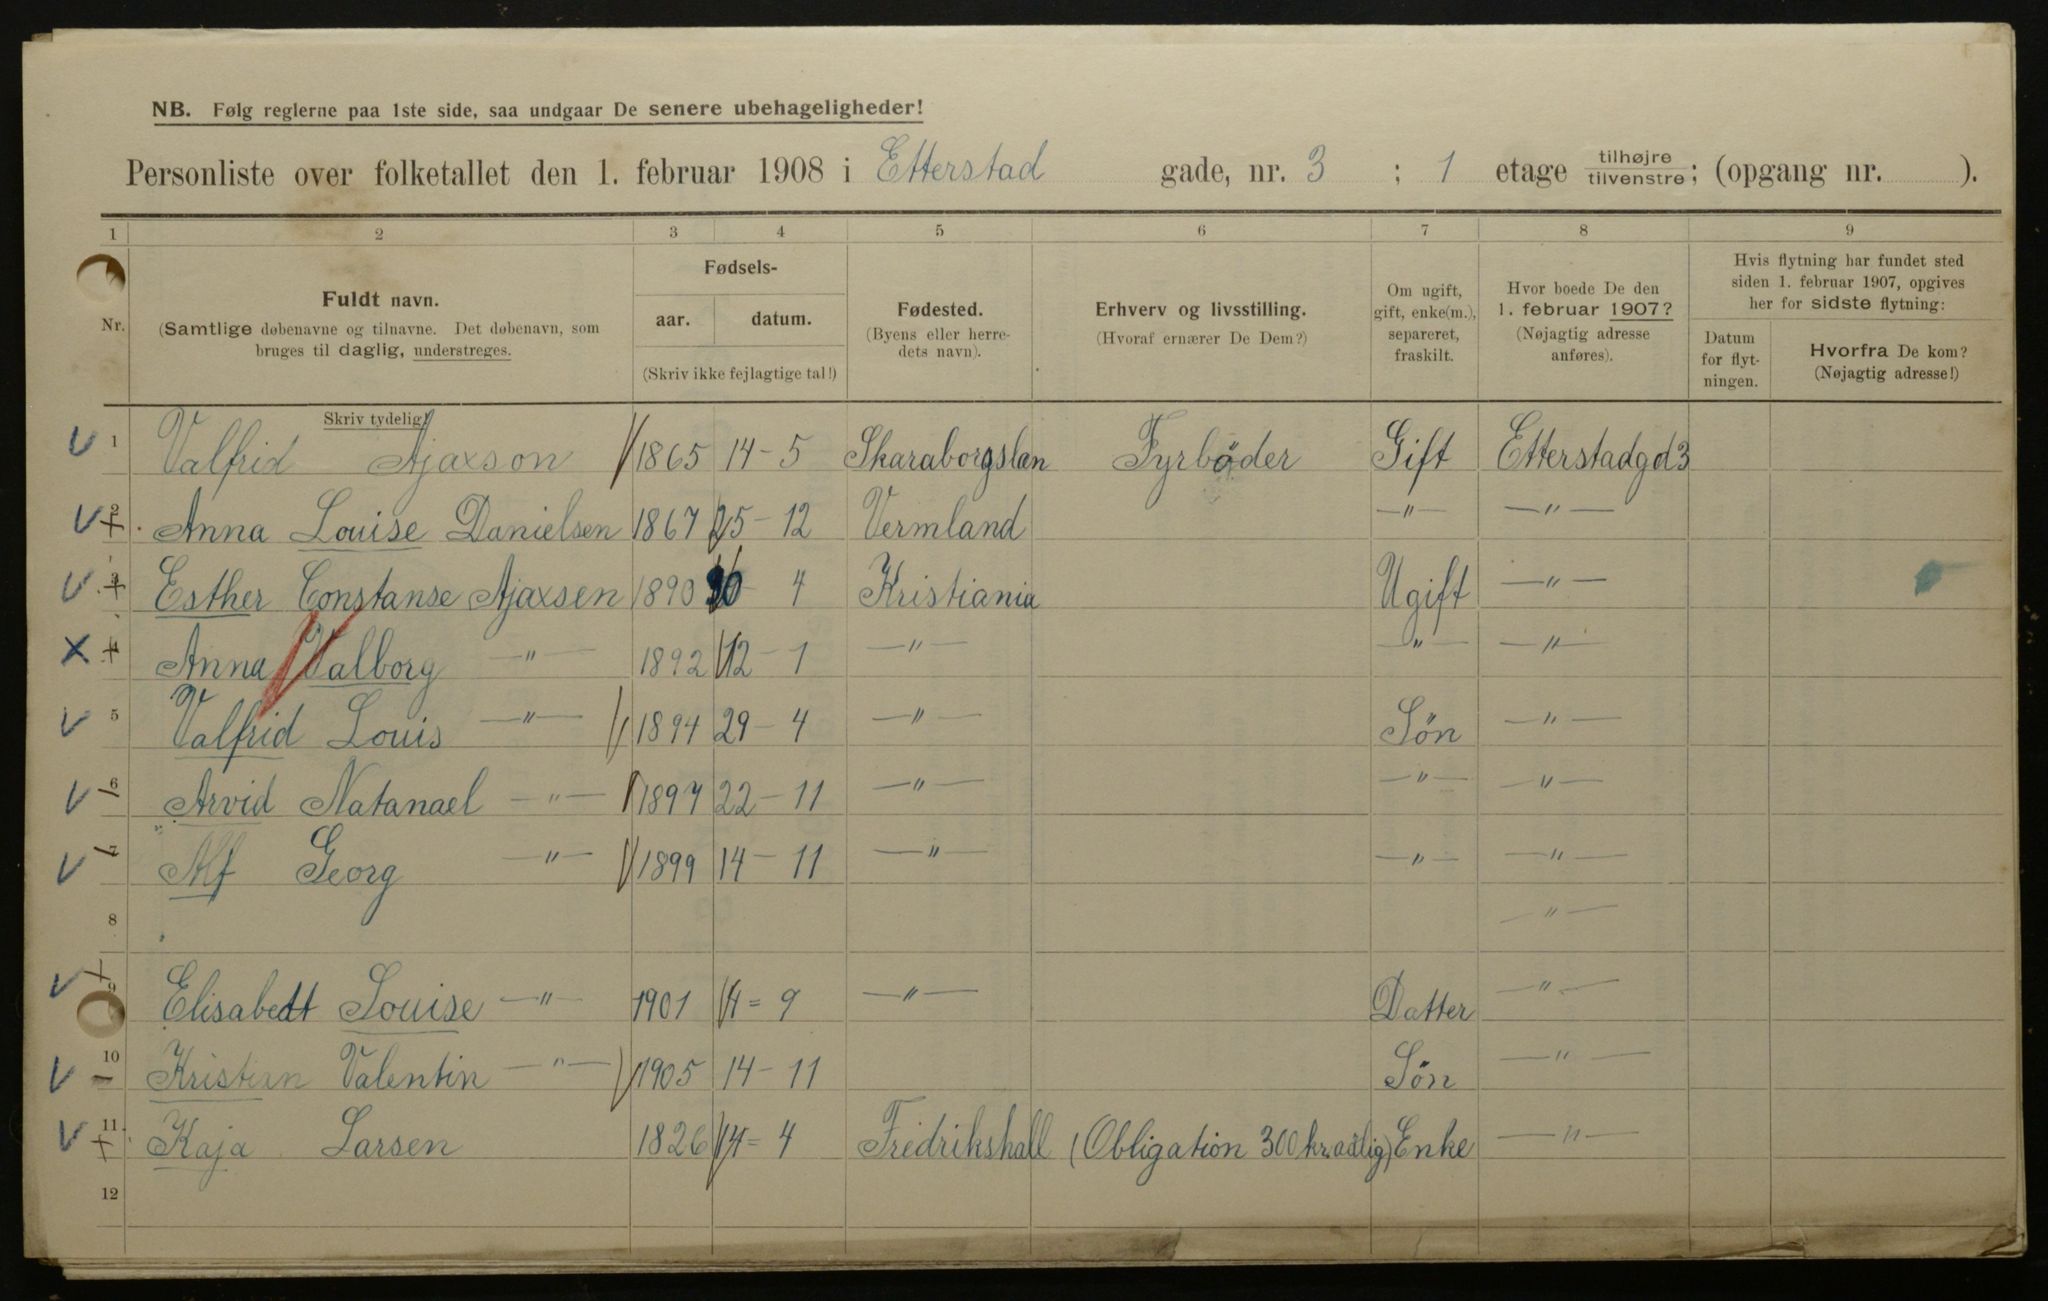 NB. Følg reglerne paa 1ste side, saa undgaar De senere ubehageligheder!
Personliste over folketallet den 1. februar 1908 i Etterstad gade, nr. 3 ; 1 etage tilhøjre tilvenstre; (opgang nr. ).
1 2 3 4 5 6 7 8 9
Nr. Fuldt navn. (Samtlige døbenavne og tilnavne. Det døbenavn, som bruges til daglig, understreges.
Fødsels- aar. datum. (Skriv ikke fejlagtige tal!)
Fødested. (Byens eller herredets navn).
Erhverv og livsstilling. (Hvoraf ernærer De Dem?)
Om ugift, gift, enke(m.), separeret, fraskilt.
Hvor boede De den 1. februar 1907? (Nøjagtig adresse anføres).
Hvis flytning har fundet sted siden 1. februar 1907, opgives her for sidste flytning:
Datum for flytningen. Hvorfra De kom? (Nøjagtig adresse!)
Skriv tydelig!
1 Valfrid Ajaxson 1865 14-5 Skaraborgslæn Fyrböder Gift Etterstadgd 3
2 Anna Louise Danielsen 1867 25-12 Vermland —"— —"—
3 Esther Constanse Ajaxsen 1890 4 Kristiania Ugift —"—
4 Anna Valborg —"— 1892 12-1 —"— —"— —"—
5 Valfrid Louis —"— 1894 29-4 —"— Sön —"—
6 Arvid Natanael —"— 1897 22-11 —"— —"— —"—
7 Alf Georg —"— 1899 14-11 —"— —"— —"—
8 —"—
9 Elisabedt Louise —"— 1901 4=9 —"— Datter —"—
10 Kristian Valentin —"— 1905 14-11 Sön —"—
11 Kaja Larsen 1826 14=4 Fredrikshall (Obligation 300 kr. aarlig) Enke —"—
12